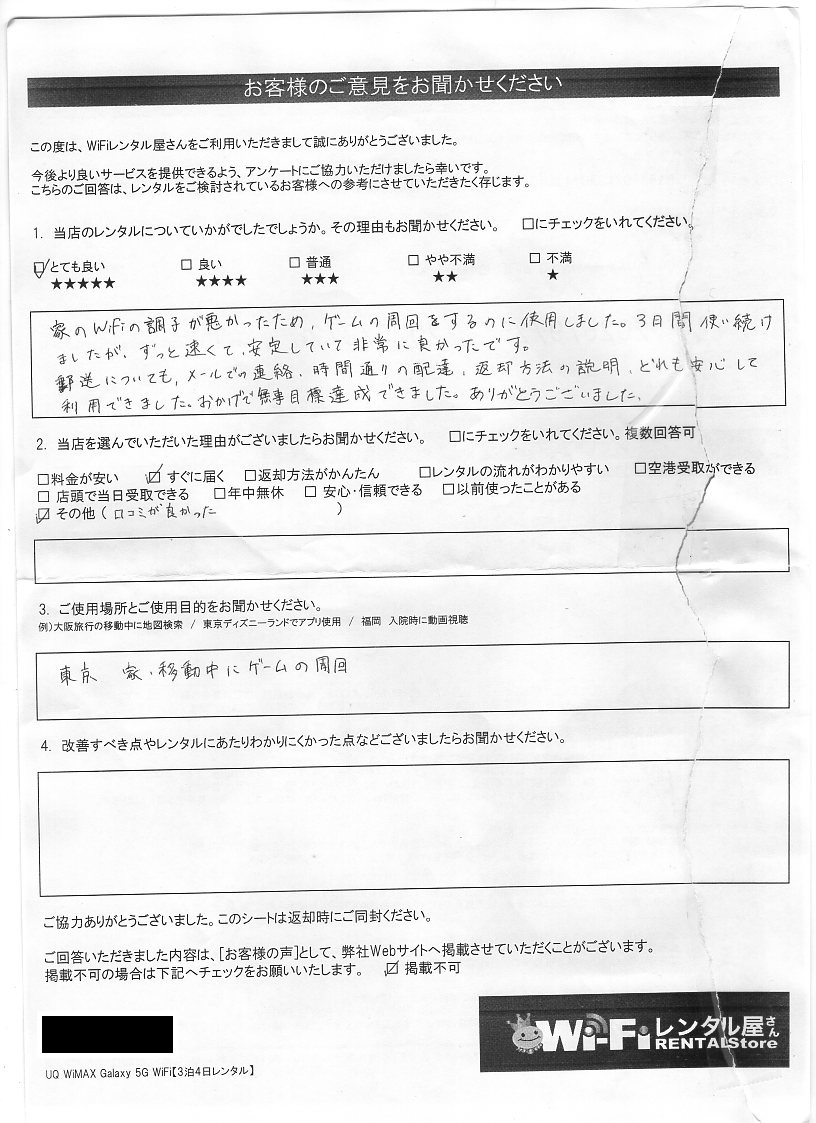 お客様のご意見をお聞かせください
この度は、WiFiレンタル屋さんをご利用いただきまして誠にありがとうございました。
今後より良いサービスを提供できるよう、アンケートにご協力いただけましたら幸いです。
こちらのご回答は、レンタルをご検討されているお客様への参考にさせていただきたく存じます。
1. 当店のレンタルについていかがでしたでしょうか。その理由もお聞かせください。 □にチェックをいれてください。
☑とても良い □ 良い □ 普通 □ やや不満 □ 不満
★★★★★ ★★★★ ★★★ ★★ ★
家のWiFiの調子が悪かったため、ゲームの周回をするのに使用しました。3日間使い続け
ましたが、ずっと速くて、安定していて非常に良かったです。
郵送についても、メールでの連絡、時間通りの配達、返却方法の説明、どれも安心して
利用できました。おかげで無事目標達成できました。ありがとうございました。
2. 当店を選んでいただいた理由がございましたらお聞かせください。 □にチェックをいれてください。複数回答可
□料金が安い ☑ すぐに届く □返却方法がかんたん □レンタルの流れがわかりやすい □空港受取ができる
□ 店頭で当日受取できる □年中無休 □ 安心・信頼できる □以前使ったことがある
☑ その他 ( 口コミが良かった )
3. ご使用場所とご使用目的をお聞かせください。
例)大阪旅行の移動中に地図検索 / 東京ディズニーランドでアプリ使用 / 福岡 入院時に動画視聴
東京 家・移動中にゲームの周回
4. 改善すべき点やレンタルにあたりわかりにくかった点などございましたらお聞かせください。
ご協力ありがとうございました。このシートは返却時にご同封ください。
ご回答いただきました内容は、[お客様の声]として、弊社Webサイトへ掲載させていただくことがございます。
掲載不可の場合は下記へチェックをお願いいたします。 ☑ 掲載不可
Wi-Fiレンタル屋さん
RENTALStore
UQ WiMAX Galaxy 5G WiFi【3泊4日レンタル】